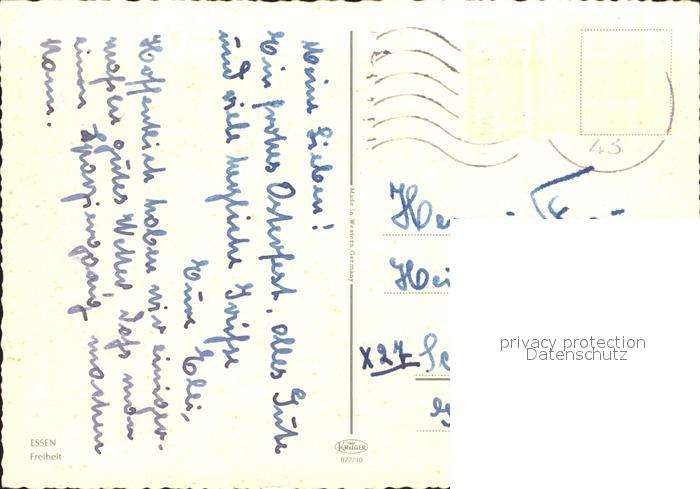 Meine Lieben!
Ein frohes Osterfest, alles Gute
und viele herzliche Grüße
Eure Elli,
Hoffentlich haben wir einiger-
maßen gutes Wetter, daß man
einen Spaziergang machen
kann.
ESSEN
Freiheit
Made in Western Germany
KRÜGER
977/10
43
X 27
privacy protection
Datenschutz